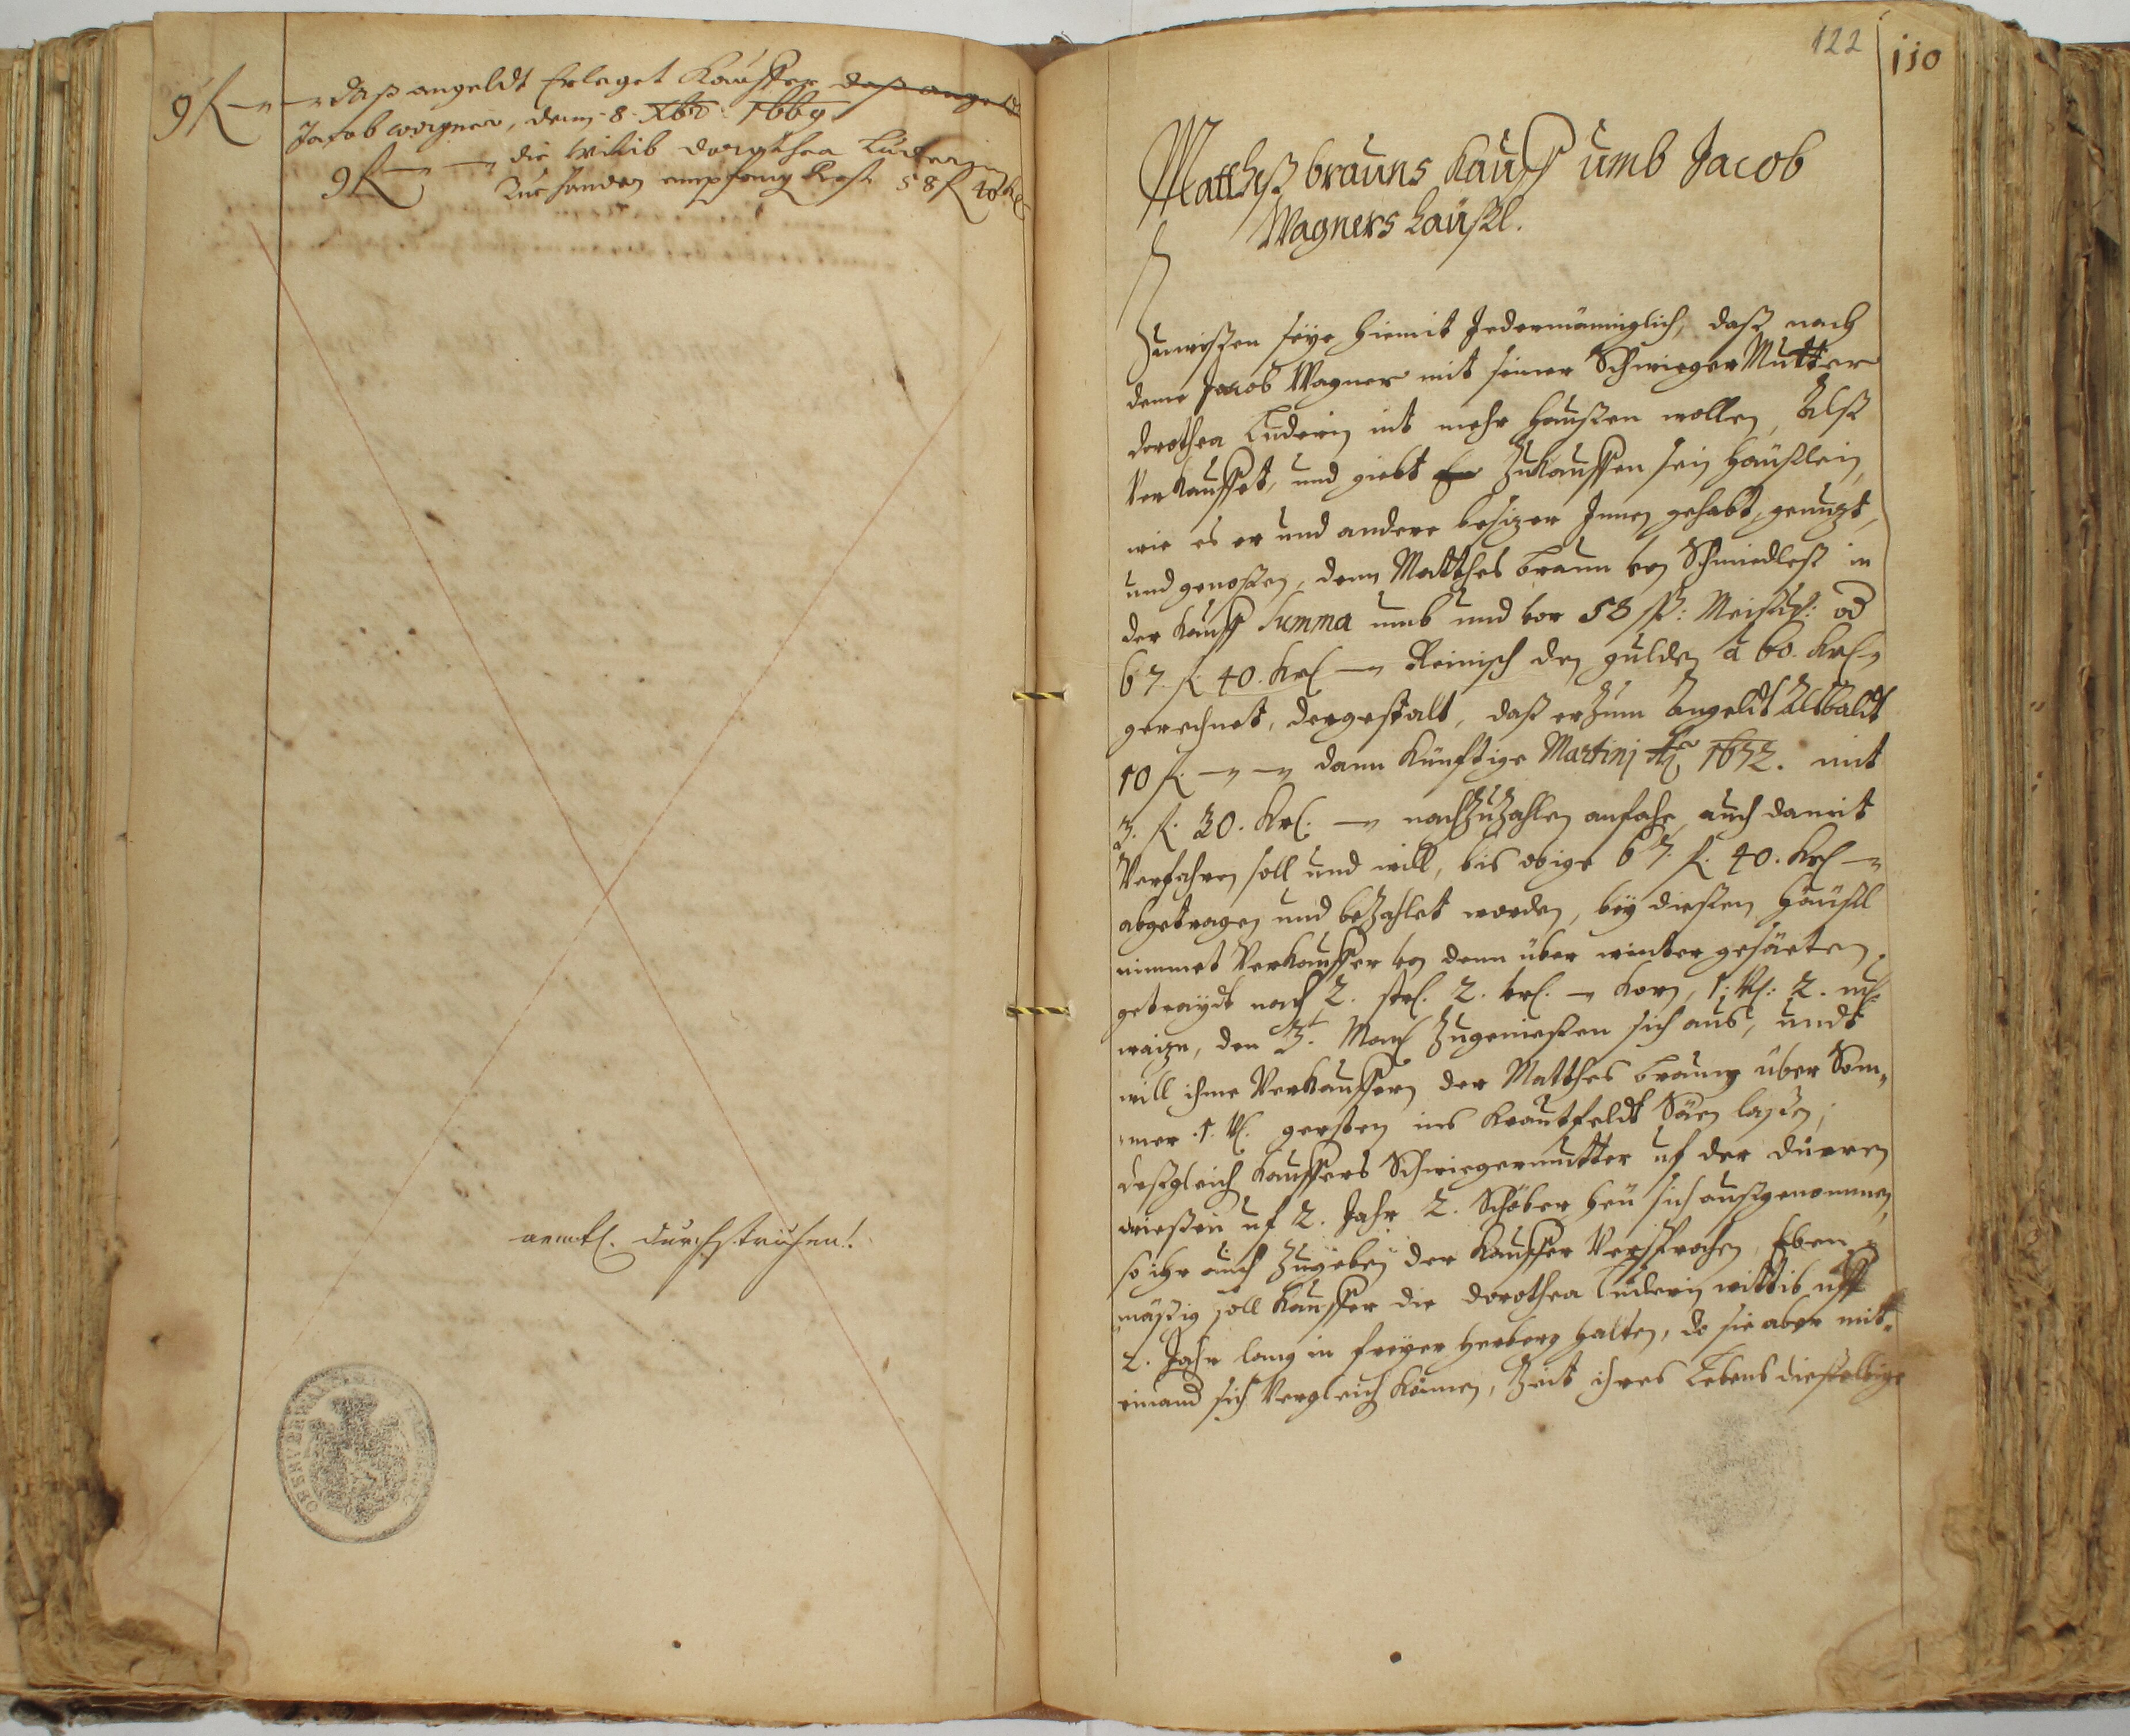 9 fl — — daß angeldt Erleget Kauffer daß angeldt
Jacob wagner, denn 8 Xbr: 1669
9 fl — — die Witib dorothea Luderin
Zue handen empfang Rest 58 fl 40 Kr
aemtl. durchstrichen!.
122
110
Matthß brauns Kauff umb Jacob
Wagners häußl.
Zuwißen seye hiemit Jedermänniglich, daß nach
deme Jacob Wagner mit seiner SchwiegerMutter
dorothea Luderin nit mehr haußen wollen, Alß
Verkauffet, und giebt Er Zukauffen sein häußlein,
wie es er und andere besizer Innen gehabt, genuzt,
und genoßen, dem Matthes braun von Schmiedleß in
der Kauff Summa umb und vor 58 ßß: Meißß: od
67 fl 40. Krl — Reinisch den gulden â 60. Krl —
gerechnet, dergestalt, daß er zum Angeldt Alsbaldt
10 fl. — — dann künftige Martinj Ao 1672. mit
3. fl. 30. Krl. — nachzuzahlen anfahe, auch damit
Verfahren soll und will, bis obige 67. fl. 40. Krl —
abgetragen und bezahlet worden, bey dießen häußl
nimmet Verkauffer von dem über winter gesäeten
getraydt nach 2. strl. 2. vrl. — Korn, 1. Vl: 2. ml
waizn, den 3t. Man Zugenießen sich aus, undt
will ihme Verkauffern der Matthes braun über Som„
mer 1. Vl. gersten ins Krautfeldt Säen laßen,
deßgleich Kauffers Schwiegermutter uf der dürren
wießen uf 2. Jahr 2. Schöber heu sich außgenommen,
so ihr auch Zugeben der Kauffer Versprochen, Eben„
mäßig soll Kauffer die dorothea Luderin wittib uff
2. Jahr lang in freyer herberg halten, do sie aber mit„
einand sich Vergleich können, Zeit ihres Lebens dießelbige